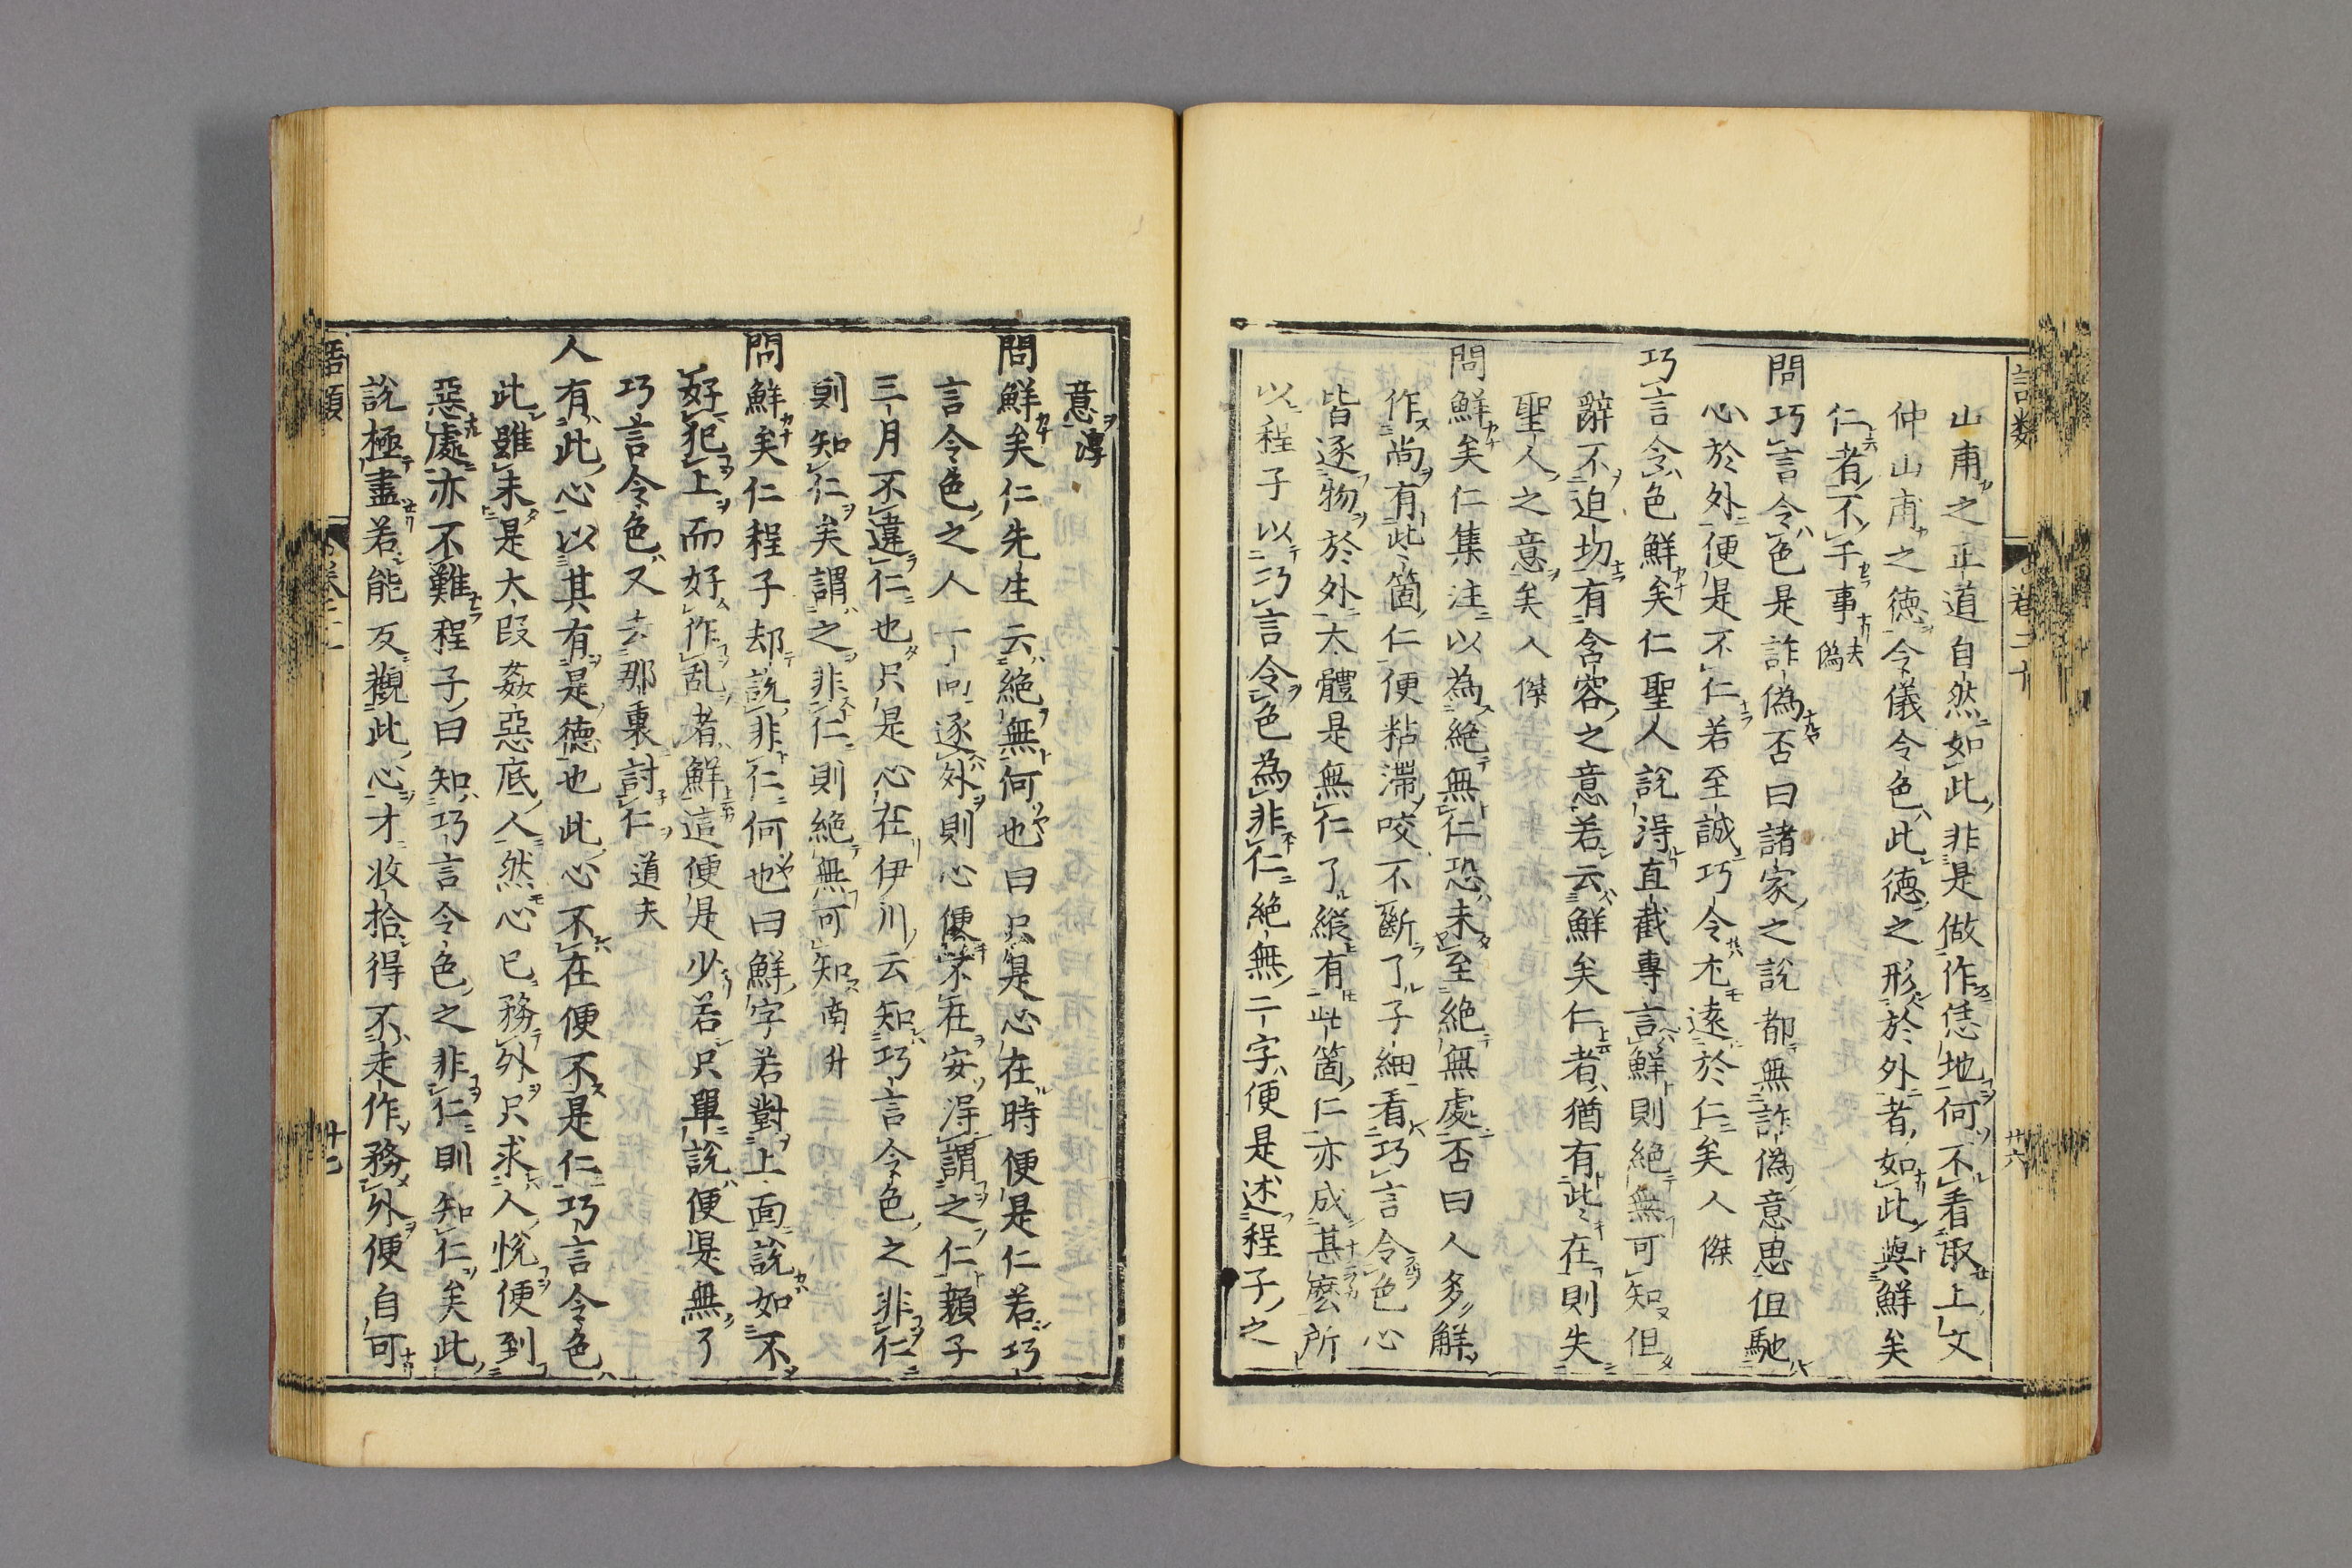 語類
卷二十
廿六
山甫之正道自然如此非是做作恁地何不看取上文
仲山甫之德令儀令色此德之形於外者如此與鮮矣
仁者不干事夫偽
問巧言令色是詐偽否曰諸家之說都無詐偽意思但馳
心於外便是不仁若至誠巧令尤遠於仁矣人傑
巧言令色鮮矣仁聖人說得直截專言鮮則絕無可知但
辭不迫切有含容之意若云鮮矣仁者猶有些在則失
聖人之意矣人傑
問鮮矣仁集注以為絕無仁恐未至絕無處否曰人多解
作尚有些箇仁便粘滯咬不斷了子細看巧言令色心
皆逐物於外大體是無仁了縱有些箇仁亦成甚麼所
以程子以巧言令色為非仁絕無二字便是述程子之
意淳
問鮮矣仁先生云絕無何也曰只是心在時便是仁若巧
言令色之人一向逐外則心便不在安得謂之仁顏子
三月不違仁也只是心在伊川云知巧言令色之非仁
則知仁矣謂之非仁則絕無可知南升
問鮮矣仁程子却說非仁何也曰鮮字若對上面說如不
好犯上而好作乱者鮮這便是少若只單說便是無了
巧言令色又去那裏討仁道夫
人有此心以其有是德也此心不在便不是仁巧言令色
此雖未是大段姦惡底人然心已務外只求人悅便到
惡處亦不難程子曰知巧言令色之非仁則知仁矣此
說極盡若能反觀此心才收拾得不走作務外便自可
語類
卷二十
廿七